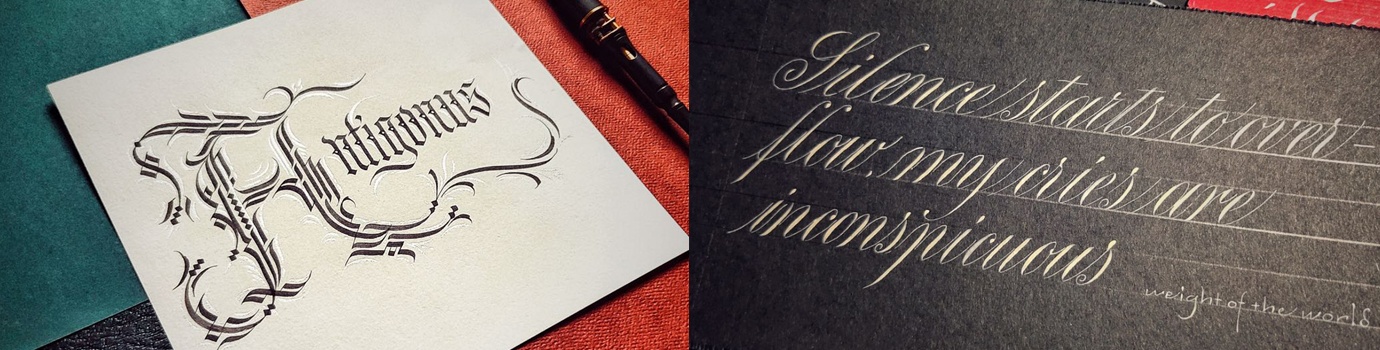 Antigonus
Silence starts to over-
flow, my cries are
inconspicuous
weight of the world